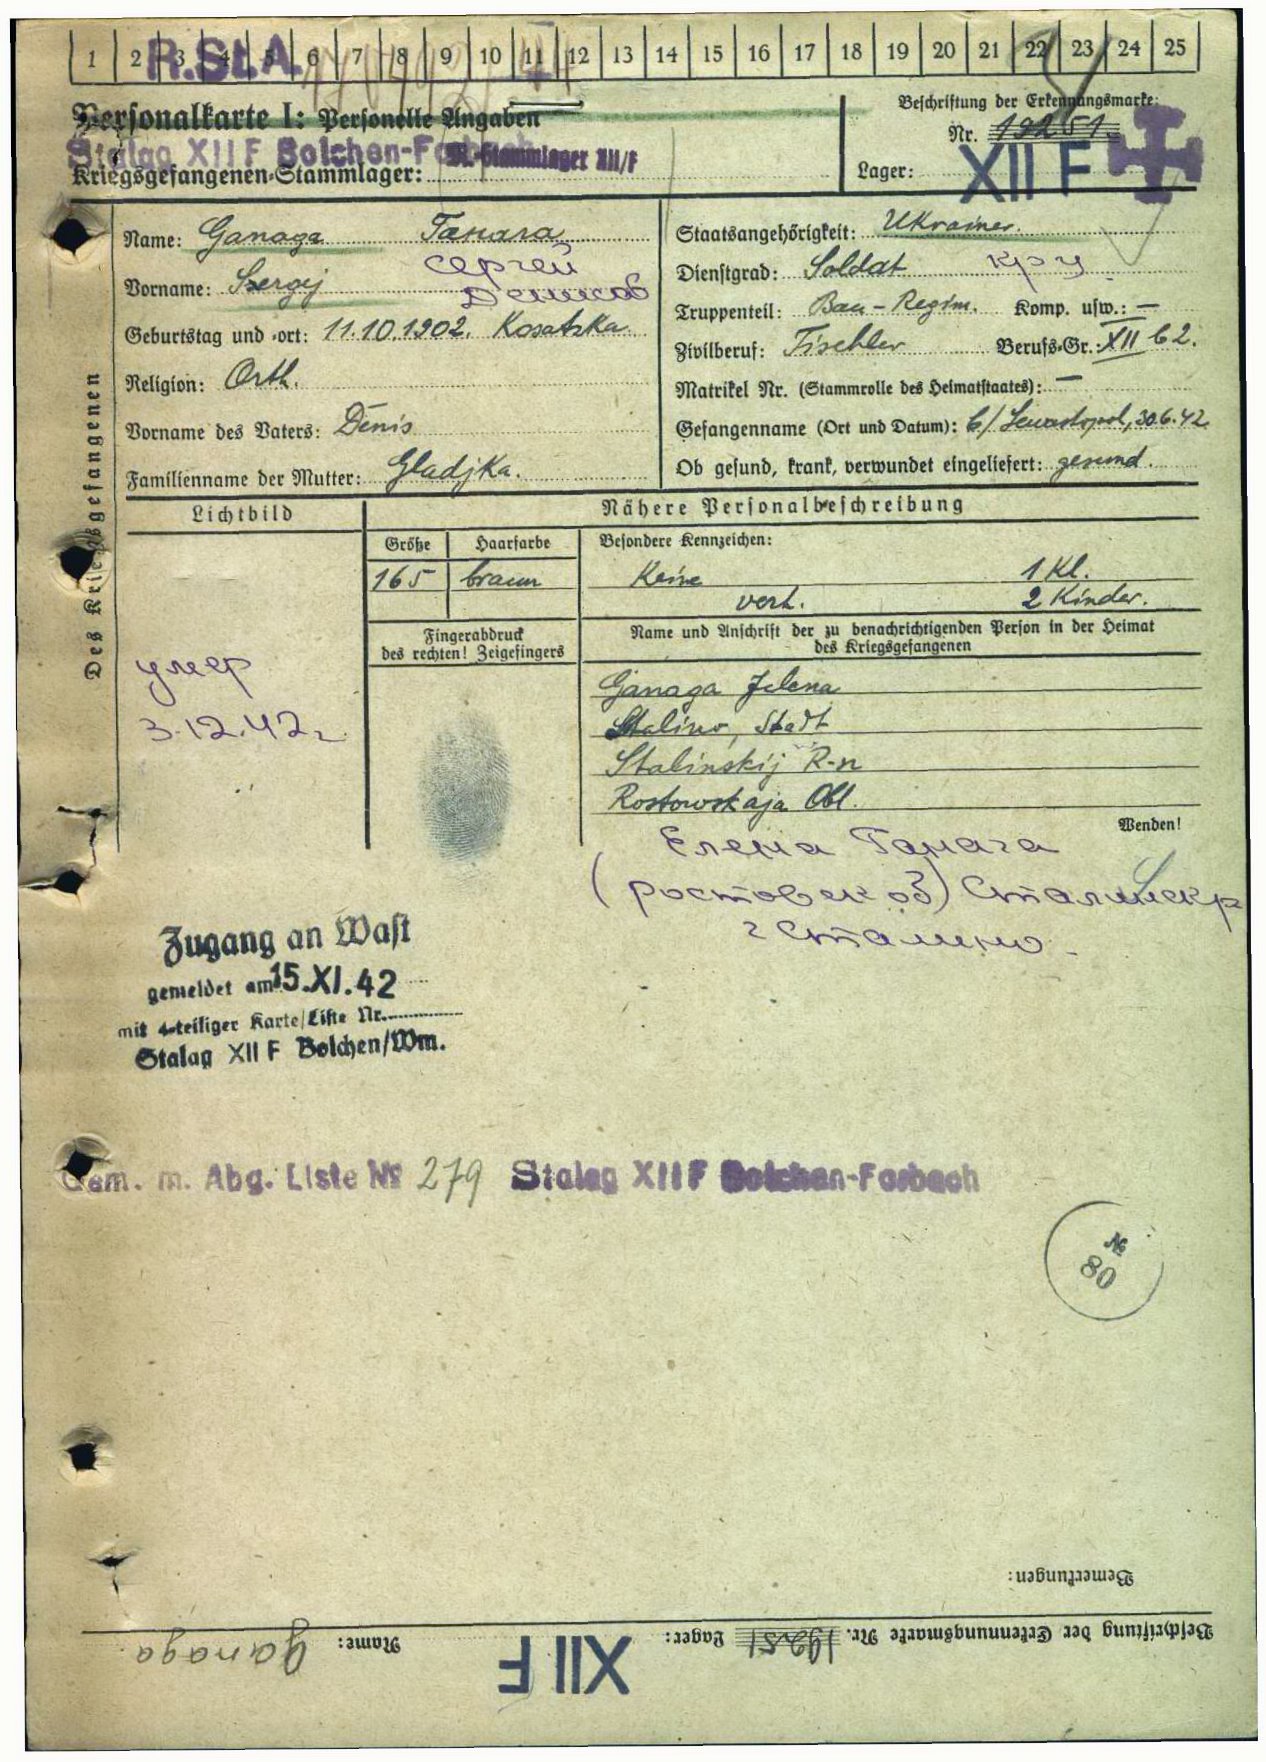 1 2 3 4 5 6 7 8 9 10 11 12 13 14 15 16 17 18 19 20 21 22 23 24 25
R.St.A.
Personalkarte I: Personelle Angaben
Beschriftung der Erkennungsmarke:
Nr. 19251.
Stalag XII F Bolchen-Forbach
M.-Stammlager XII/F
Kriegsgefangenen-Stammlager:
Lager: XII F
Des Kriegsgefangenen
Name: Ganaga Ганага
Сергей
Vorname: Szergij
Денисов
Geburtstag und -ort: 11.10.1902. Kosatzka
Religion: Orth.
Vorname des Vaters: Denis
Familienname der Mutter: Gladjka.
Staatsangehörigkeit: Ukrainer.
Dienstgrad: Soldat кр-ц
Truppenteil: Bau-Regim. Komp. usw.: —
Zivilberuf: Tischler Berufs-Gr.: XII b 2.
Matrikel Nr. (Stammrolle des Heimatstaates): —
Gefangenname (Ort und Datum): b/ Sewastopol, 30.6.42.
Ob gesund, krank, verwundet eingeliefert: gesund.
Lichtbild
Nähere Personalbeschreibung
Größe Haarfarbe Besondere Kennzeichen:
165 braun Keine 1 Kl.
verh. 2 Kinder.
Fingerabdruck
des rechten! Zeigefingers
Name und Anschrift der zu benachrichtigenden Person in der Heimat
des Kriegsgefangenen
умер
3.12.42г.
Ganaga Jelena
Stalino, Stadt
Stalinskij R-n
Rostowskaja Obl.
Wenden!
Елена Ганага
(ростовск об) Сталинск р
г Сталино
Zugang an Wast
gemeldet am 15.XI.42
mit 4-teiliger Karte/Liste Nr.
Stalag XII F Bolchen/Wm.
Gem. m. Abg. Liste № 279 Stalag XII F Bolchen-Forbach
№
80
Bemerkungen:
Beschriftung der Erkennungsmarke Nr. 19251 Lager: XII F Name: Ganaga